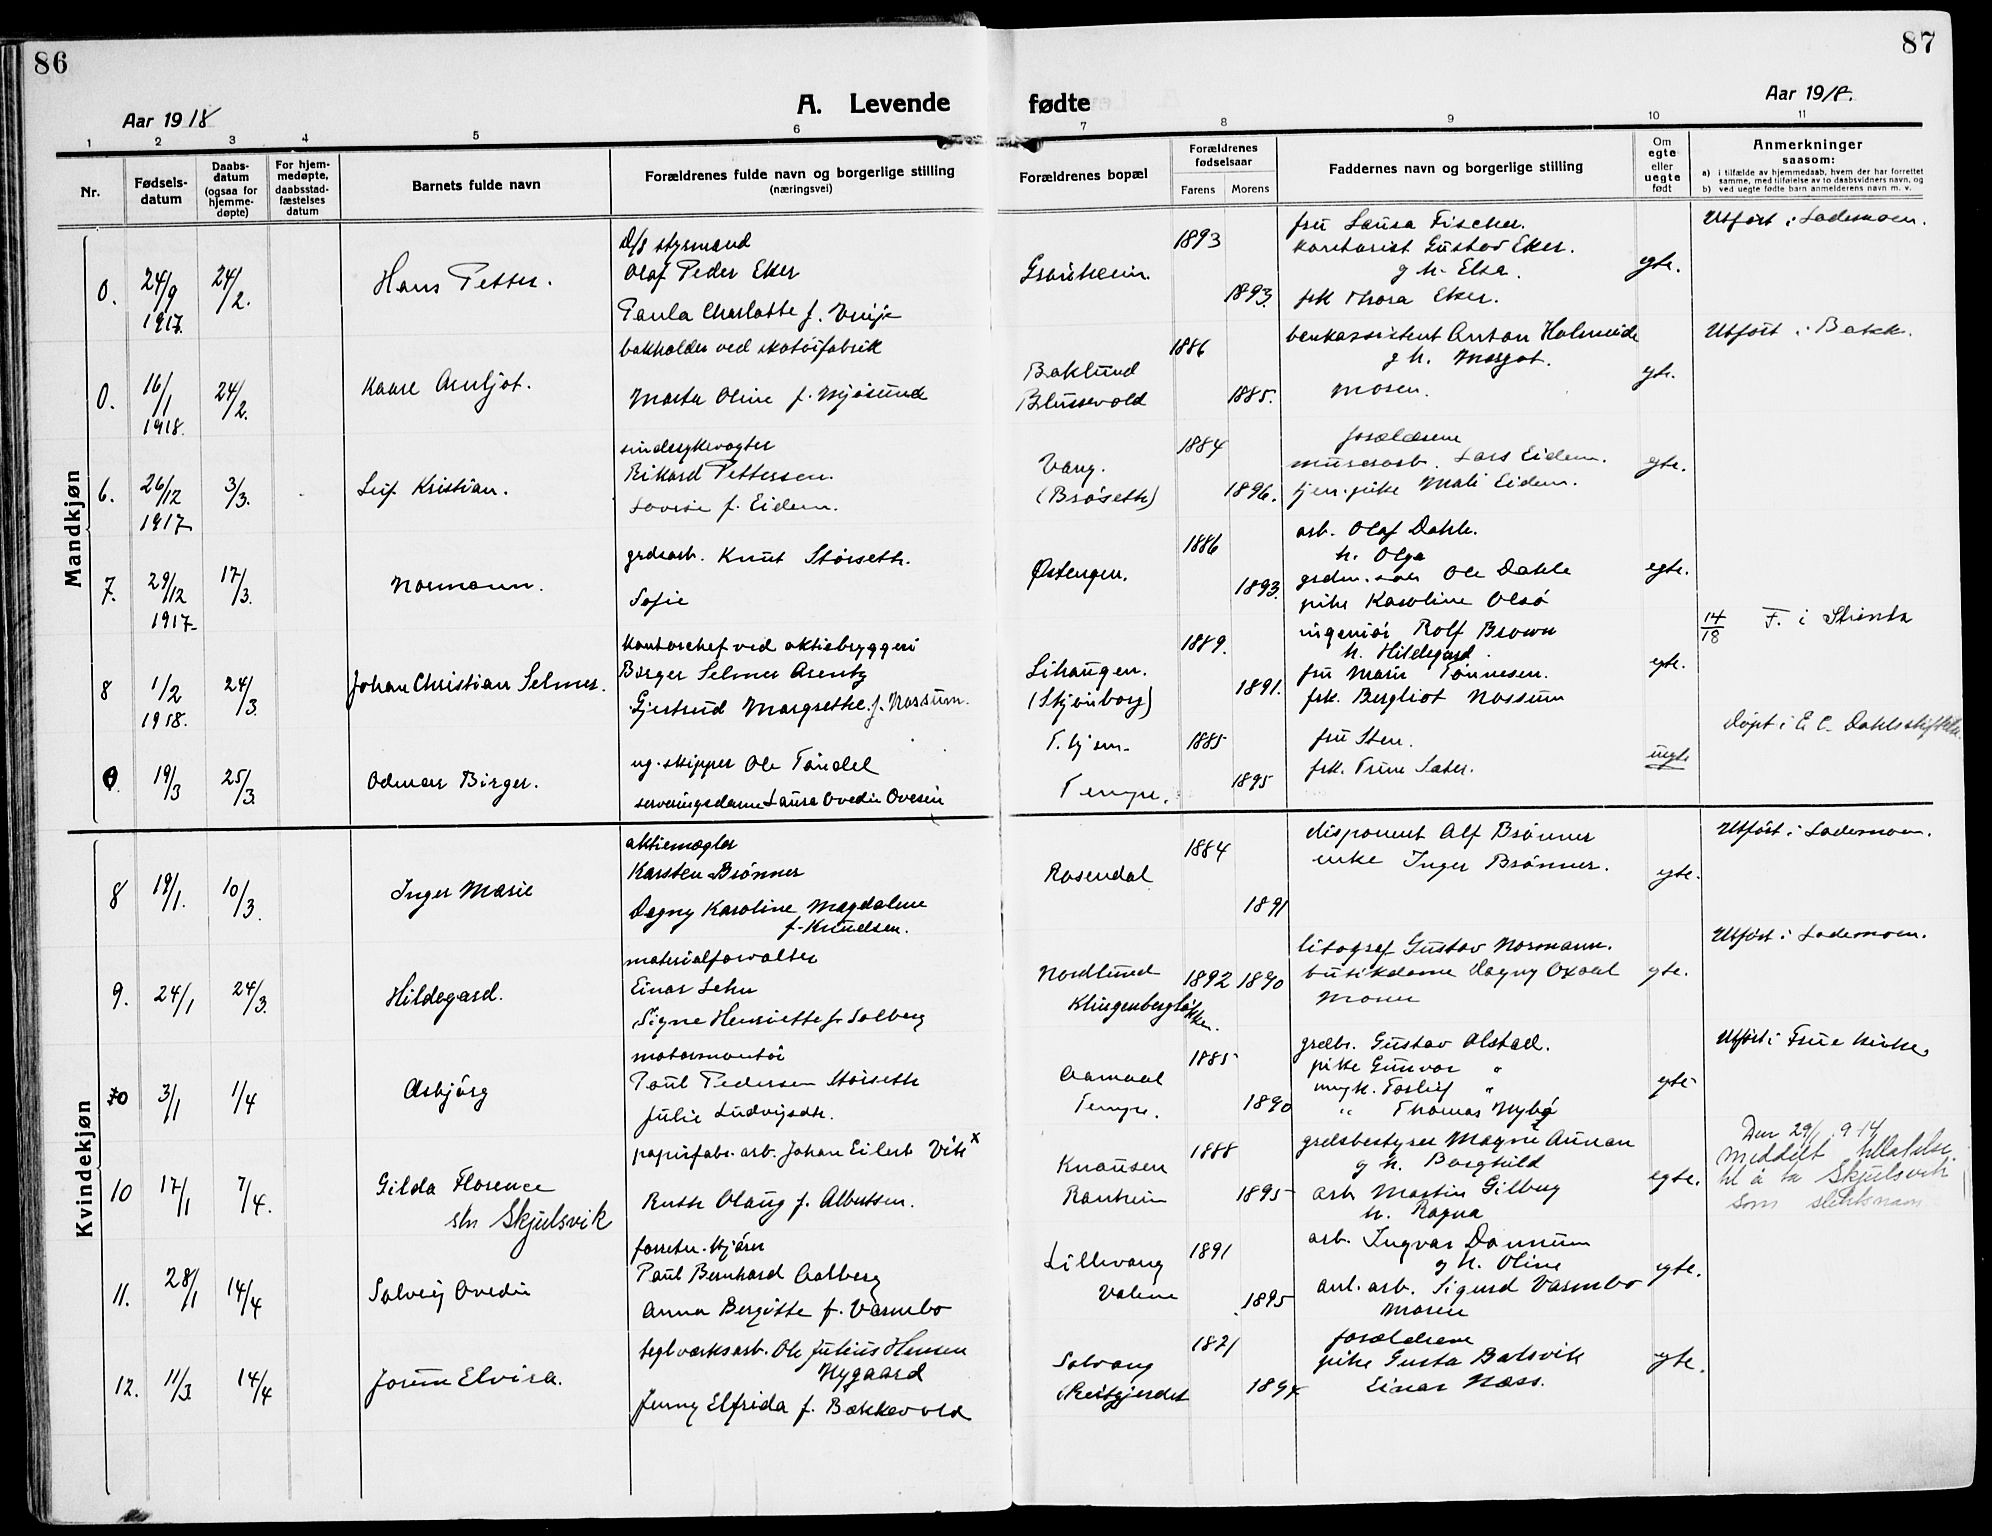 86
87
Aar 1918
A. Levende
fødte
Aar 1918.
1 2 3 4 5 6 7 8 9 10 11
Nr.
Fødsels-
datum
Daabs-
datum
(ogsaa for
hjemme-
døpte)
For hjem-
medøpte,
daabsstad-
fæstelses
datum
Barnets fulde navn
Forældrenes fulde navn og borgerlige stilling
(næringsvei)
Forældrenes bopæl
Forældrenes
fødselsaar
Farens
Morens
Faddernes navn og borgerlige stilling
Om
egte
eller
uegte
født
Anmerkninger
saasom:
a) i tilfælde av hjemmedaab, hvem der har forrettet
samme, med tilføielse av to daabsvidners navn, og
b) ved uegte fødte barn anmelderens navn m. v.
Mandkjøn
0. 24/9 1917. 24/2. Hans Petter.
D/S styrmand
Olaf Peder Eker
Paula Charlotte f. Vinje
Granheim. 1893 1893.
fru Laura Fischer.
kontorist Gustav Eker.
g h. Elsa.
frk Thora Eker.
egte.
Utført i Lademoen.
0. 16/1 1918. 24/2. Kaare Arnljot.
bokholder ved skotøifabrik
Marta Oline f. Mjøsund
Baklund
Blussevold
1886 1885.
bankassistent Anton Holmeide
g h. Margot.
Moren.
egte.
Utført i Bakk.
6. 26/12 1917 3/3. Leif Kristian.
sindssykevogter
Rikard Pettersen.
Lovise f. Eidem.
Vang.
(Brøseth)
1884 1896.
forældrene
murerarb. Lars Eidem.
tjen.pike Mali Eidem.
egte.
7. 29/12 1917- 17/3. Normann.
grdsarb. Knut Størseth.
Sofie
Østengen. 1886 1893.
arb. Olaf Dahle.
h. Olga
grdm.søn Ole Dahle
pike Karoline Olsø
egte.
8 1/2 1918. 24/3. Johan Christian Selmer.
kontorchef ved aktiebryggeri
Birger Selmer Arentz
Gjertrud Margrethe f. Nossum.
Lihaugen.
(Skjønborg)
1889. 1891.
ingeniør Rolf Brown
h. Hildegard.
fru Marie Tønnesen.
frk. Bergliot Nossum
egte.
14/18 F. i Strinda
0. 19/3 25/3. Odmar Birger.
ug. skipper Ole Tandel
serveringsdame Laura Ovedie Ovesen
T.hjem.
Tempe.
1885 1895
fru Sten.
frk. Trine Sæter.
uegte
Døpt i E. C. Dahlsstiftelse.
Kvindekjøn
8 19/1. 10/3. Inger Marie
aktiemægler
Karsten Brønner
Dagny Karoline Magdalene
f. Knudsen.
Rosendal 1884 1891
disponent Alf Brønner
enke Inger Brønner.
egte.
Utført i Lademoen.
9. 24/1 24/3. Hildegard.
materialforvalter
Einar Lehn
Signe Henriette f. Solberg
Nordlund
Klingenbergløkken.
1892 1890
litograf Gustav Normann.
butikdame Dagny Oxaal
Moren
egte.
Utført i Lademoen.
10 3/1 1/4 Asbjørg
motormontør
Paul Pedersen Størseth
Julie Ludvigsdtr.
Tempe.
1885 1890
grdbr. Gustav Olstad.
pike Gunvor "
ungk. Torleif "
" Thomas Nybø
egte
Utført i Frue kirke.
10 17/1 7/4. Gilda Florence
Skjulsvik
papirfabr.arb. Johan Eilert Vik x
Ruth Olaug f. Albertsen.
Knausen
Ranheim
1888 1895
grdsbestyrer Magne Aunan
g h. Borghild
arb Martin Gilberg
h. Ragna
egte.
Meddelt tillatelse
til å ta Skjulsvik
som slektsnavn
11. 28/1 14/4 Solveig Ovedie
forretn.kjører
Paul Bernhard Aalberg
Anna Bergitte f. Varmbo
Lillevang
Valene
1891 1895
arb. Ingvar Dannum
g h. Oline
anl. arb. Sigurd Varmbo
Moren
egte.
12. 11/3 14/4 Jorun Elvira.
teglverksarb. Ole Julius Hansen
Nygaard
Jenny Elfrida f. Bækkevold
Solvang
Reitgjerdet
1894.
forældrene
pike Gusta Balsvik
Einar Næss.
egte.